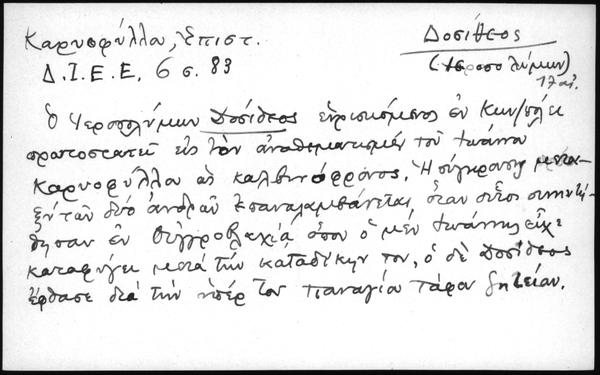 Καρυοφύλλου, Ἐπιστ.
Δοσίθεος
Δ.Ι.Ε.Ε. 6 σ. 83
(Ιεροσολύμων)
17 αἰ.
Ὁ Ἱεροσολύμων Δοσίθεος εὑρισκόμενος ἐν Κων/πόλει
πρωτοστατεῖ εἰς τὸν ἀναθεματισμόν τοῦ Ἰωάννου
Καρυοφύλλου ὡς καλβινόφρονος. Ἡ σύγκρουσις μετα-
ξύ τῶν δύο ἀνδρῶν ἐπαναλαμβάνεται, ὅταν οὗτοι συνηντή-
θησαν ἐν Οὐγγροβλαχίᾳ ὅπου ὁ μέν Ἰωάννης εἶχε
καταφύγει μετά τήν καταδίκην του, ὁ δὲ Δοσίθεος
ἔφθασε διά τήν ὑπέρ τοῦ παναγίου τάφου ζητείαν.